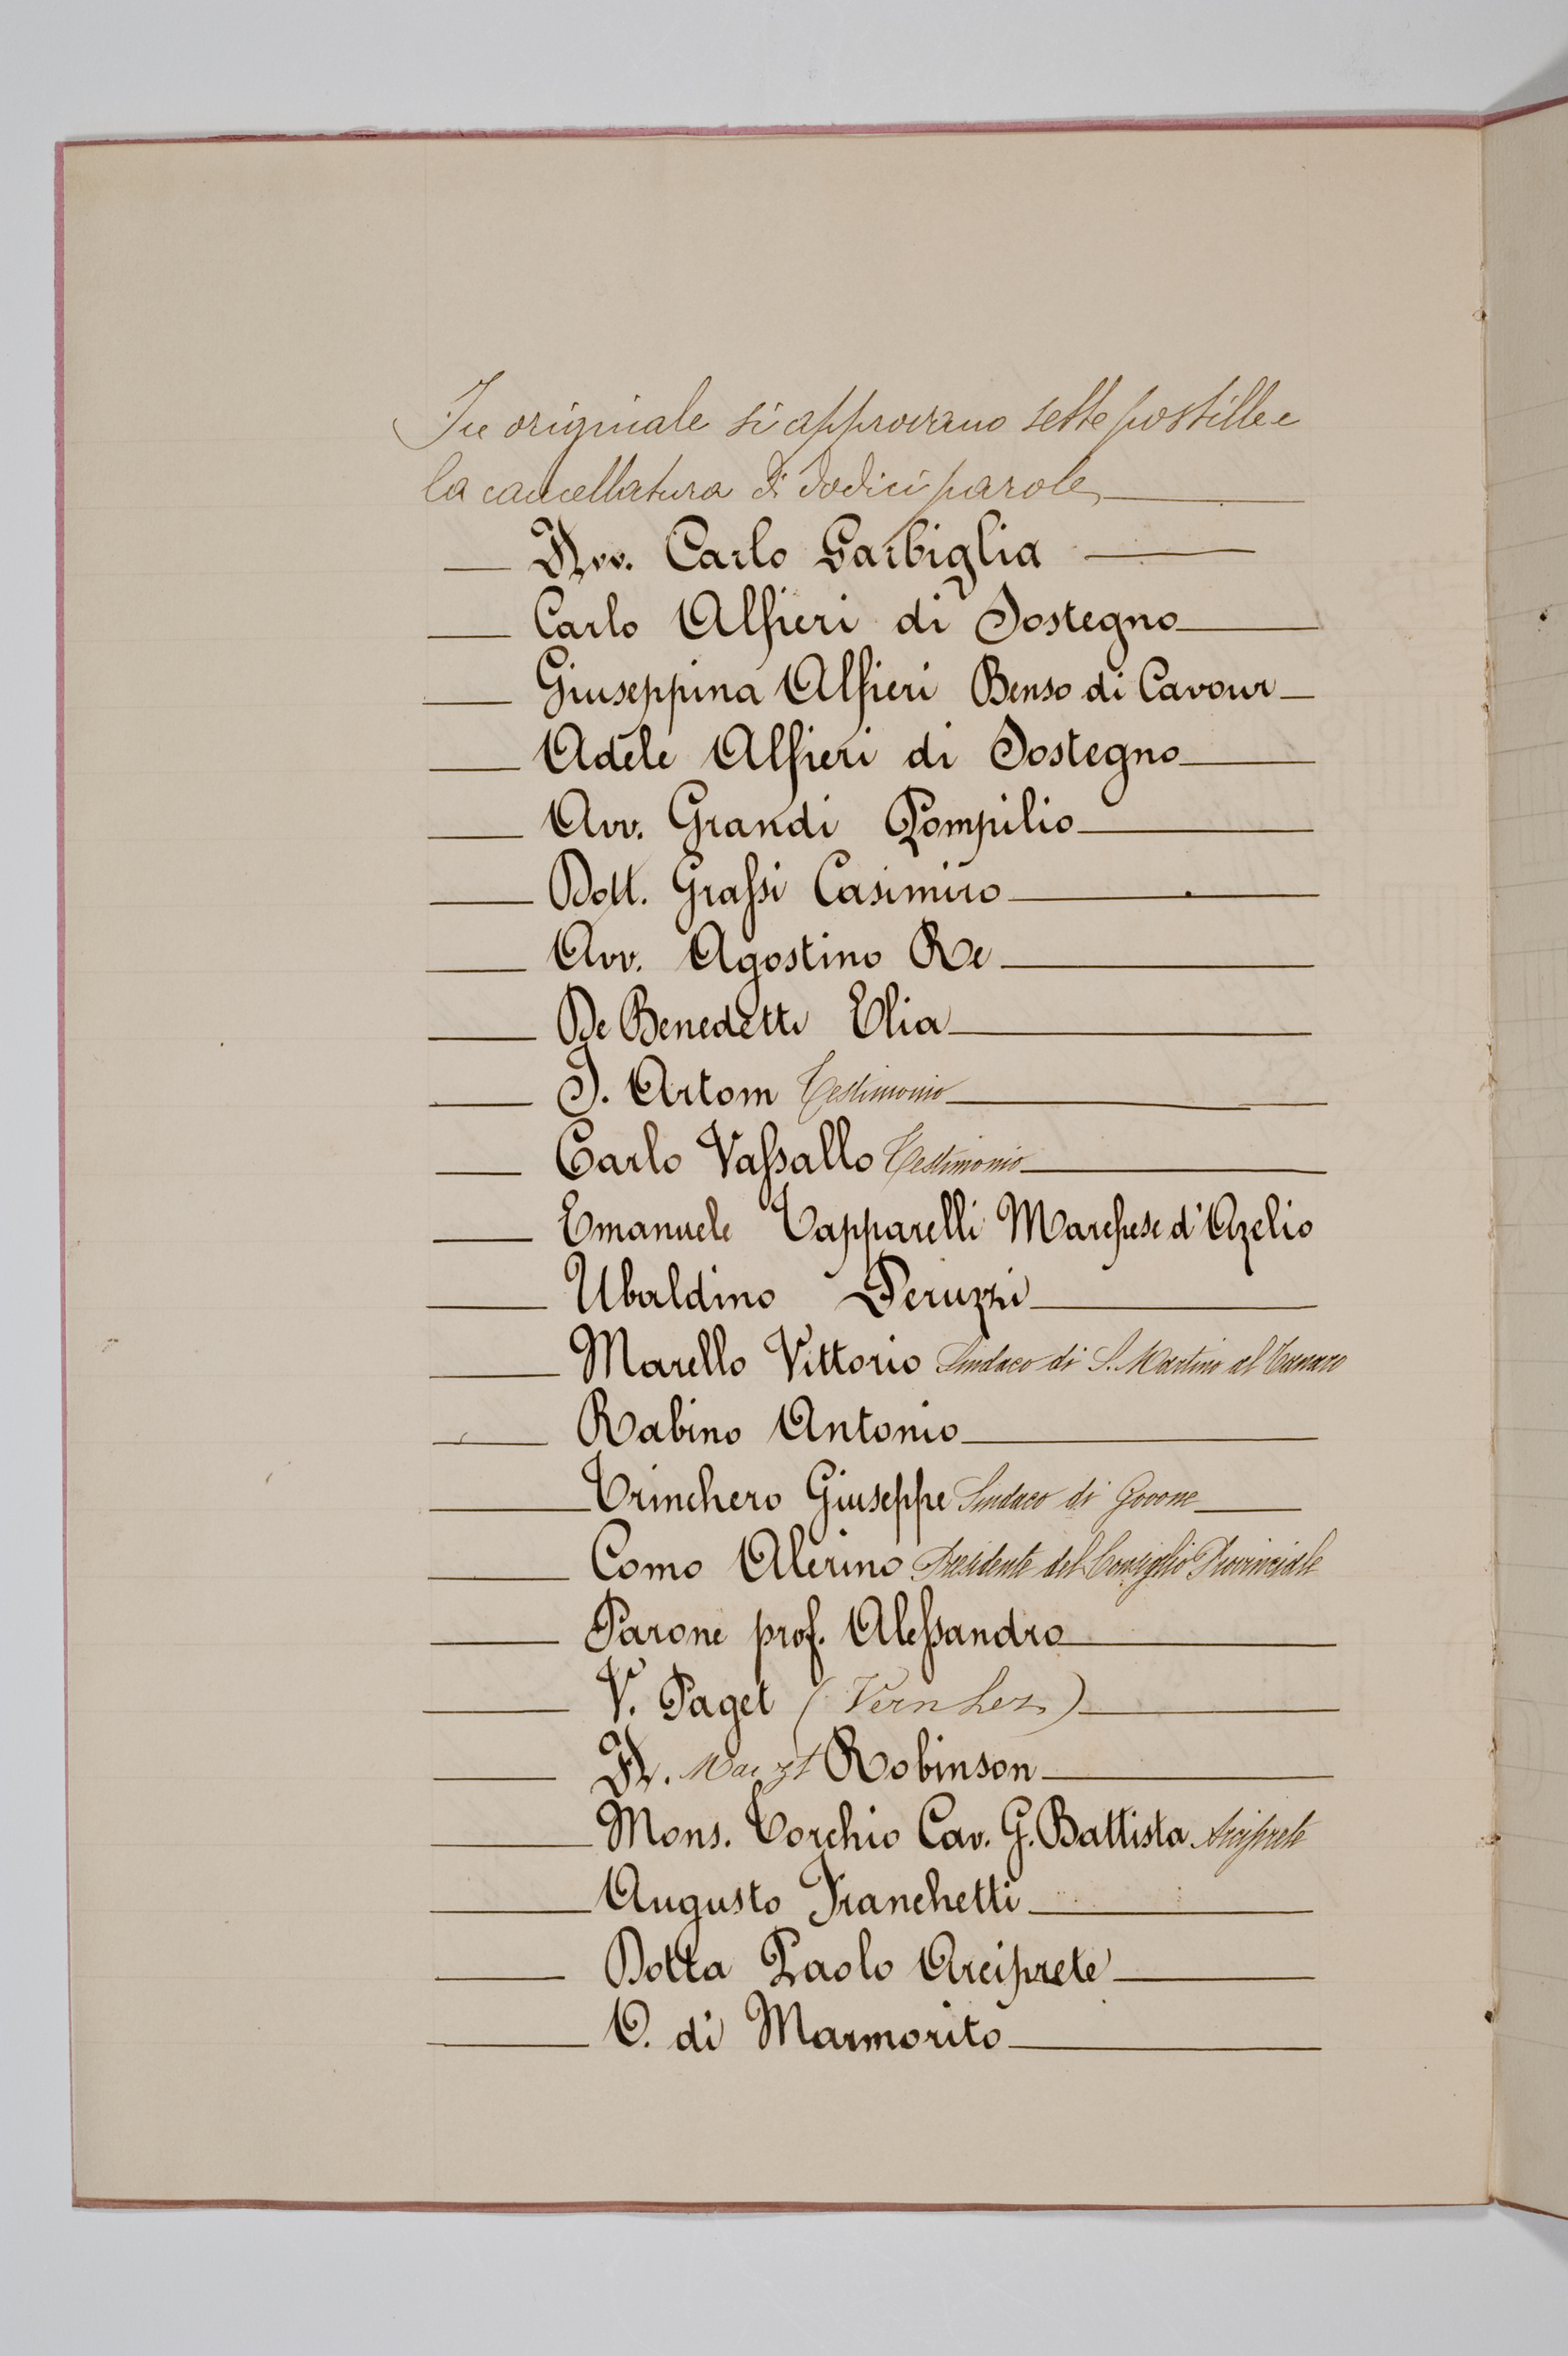 In originale si approvano sette postille e
la cancellatura di dodici parole
Avv. Carlo Garbiglia
Carlo Alfieri di Sostegno
Giuseppina Alfieri Benso di Cavour
Adele Alfieri di Sostegno
Avv. Grandi Pompilio
Dott. Grassi Casimiro
Avv. Agostino Re
De Benedetti Elia
I. Artom Testimonio
Carlo Vassallo Testimonio
Emanuele Tapparelli Marchese d'Azelio
Ubaldino Peruzzi
Marello Vittorio Sindaco di S. Martino al Tanaro
Rabino Antonio
Trinchero Giuseppe Sindaco di Govone
Como Alerino Presidente del Consiglio Provinciale
Parone prof. Alessandro
V. Paget (Vernhes)
A. Robinson
Mons. Torchio Cav. G. Battista Arciprete
Augusto Franchetti
Dotta Paolo Arciprete
O. di Marmorito